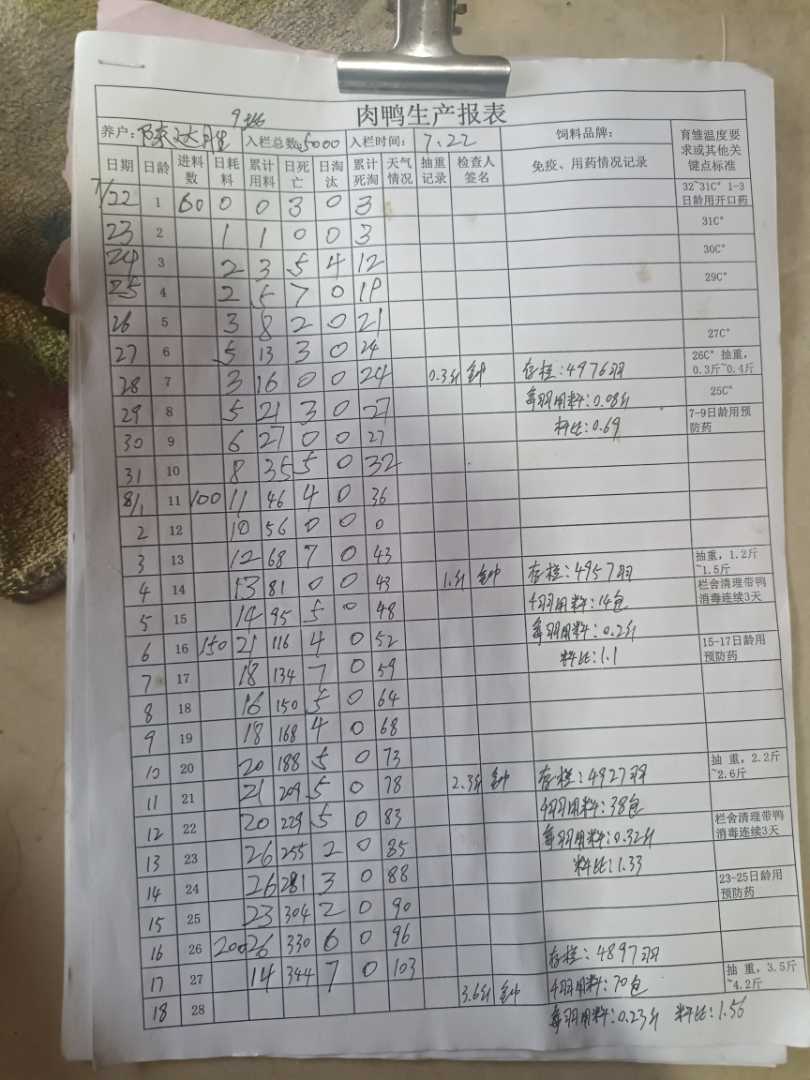 肉鸭生产报表
9批
养户: 入栏总数 5000 入栏时间: 7.22 饲料品牌: 育雏温度要求或其他关键点标准
日期 日龄 进料数 日耗料 累计用料 日死亡 日淘汰 累计死淘 天气情况 抽重记录 检查人签名 免疫、用药情况记录
7/22 1 60 0 0 3 0 3 32~31C° 1-3日龄用开口药
23 2 1 1 0 0 3 31C°
24 3 2 3 5 4 12 30C°
25 4 2 5 7 0 19 29C°
26 5 3 8 2 0 21
27 6 5 13 3 0 24 27C°
28 7 3 16 0 0 24 0.3斤 钟 存栏:4976羽 26C° 抽重,0.3斤~0.4斤
29 8 5 21 3 0 27 每羽用料:0.08斤 25C°
30 9 6 27 0 0 27 料比:0.69 7-9日龄用预防药
31 10 8 35 5 0 32
8/1 11 100 11 46 4 0 36
2 12 10 56 0 0 0
3 13 12 68 7 0 43
4 14 13 81 0 0 43 1.斤 钟 存栏:4957羽 抽重,1.2斤~1.5斤
5 15 14 95 5 0 48 千羽用料:14包 栏舍清理带鸭消毒连续3天
6 16 150 21 116 4 0 52 每羽用料:0.2斤
7 17 18 134 7 0 59 料比:1.1 15-17日龄用预防药
8 18 16 150 5 0 64
9 19 18 168 4 0 68
10 20 20 188 5 0 73
11 21 21 209 5 0 78 2.3斤 钟 存栏:4927羽 抽重,2.2斤~2.6斤
12 22 20 229 5 0 83 千羽用料:38包
13 23 26 255 2 0 85 每羽用料:0.32斤 栏舍清理带鸭消毒连续3天
14 24 26 281 3 0 88 料比:1.33
15 25 23 304 2 0 90 23-25日龄用预防药
16 26 200 26 330 6 0 96
17 27 14 344 7 0 103 存栏:4897羽
18 28 3.6斤 钟 千羽用料:70包 抽重,3.5斤~4.2斤
每羽用料:0.23斤 料比:1.56